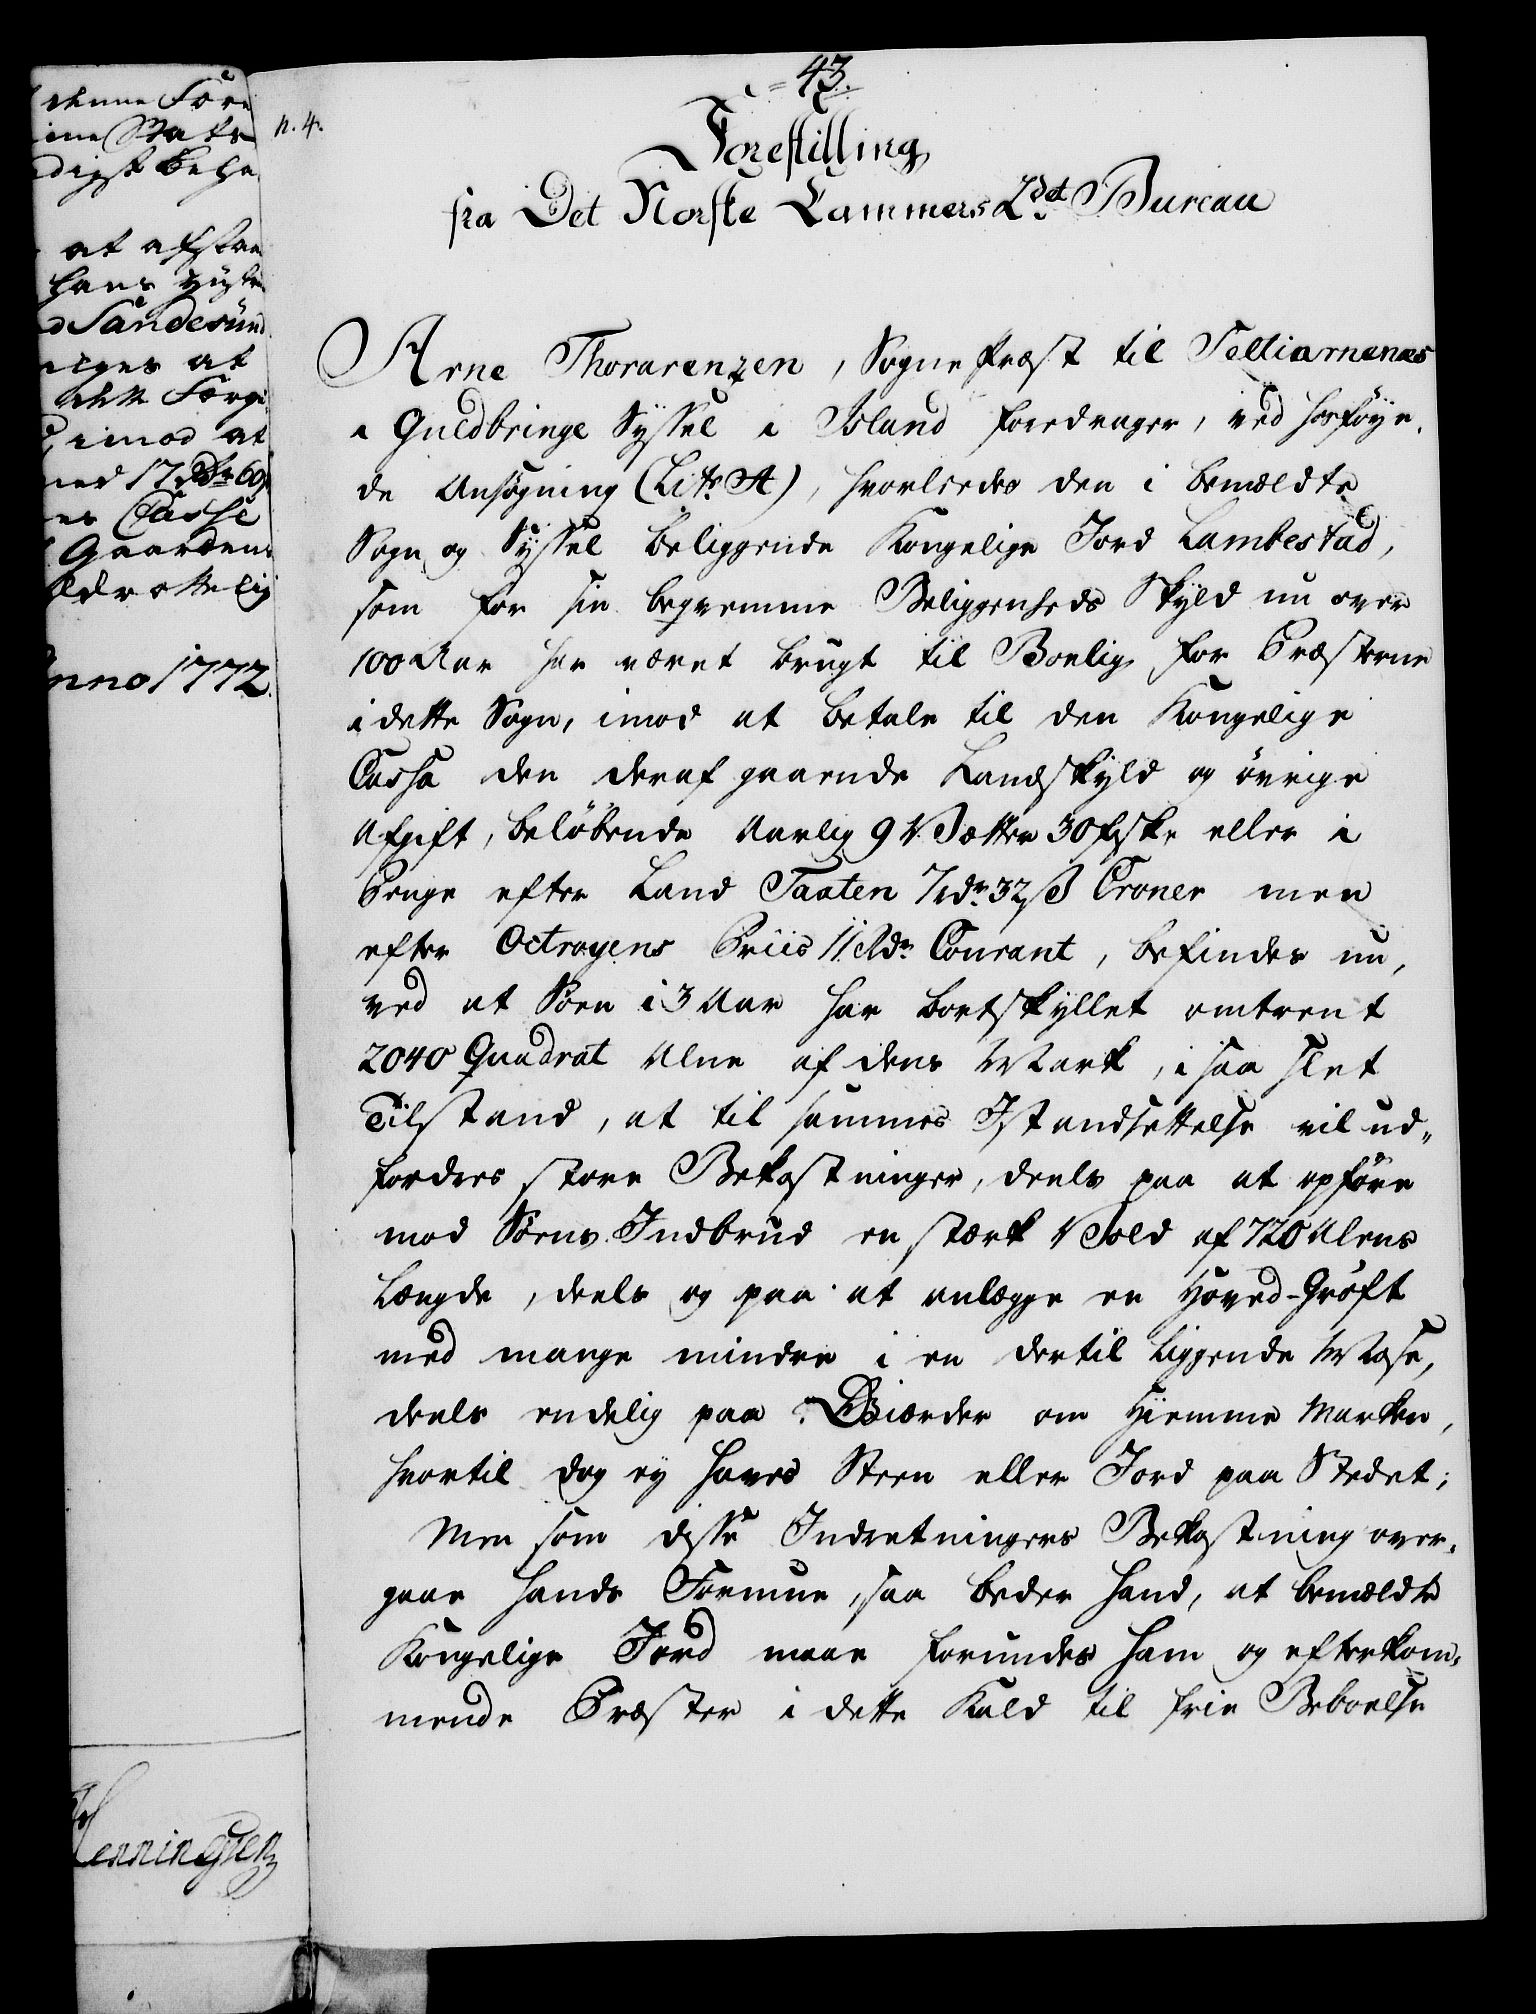 denne Fore
ine Mats
digst beha
at afstaa
hans Hüstr
d Sandesünd
elges at
dette Forge
imod at
ned 17 Rdr 60
es Casse
Gaardens
ædrottelig
nno 1772.
Henningsen
n. 4.
= 43.
Forestilling
fra Det Norske Cammers 2det Bureau
Arne Thorarenzen, Sogne Præst til Selliarnenæs
i Guldbringe Syssel i Island foredrager, ved hosföyen,
de Ansøgning (Litr A), hvorledes den i bemældte
Sogn og Syssel beliggende Kongelige Jord Lambestad,
som for sin beqvemme Beliggenheds Skyld nu over
100 Aar har været brugt til Boelig for Præsterne
i dette Sogn, imod at betale til den Kongelige
Cassa den deraf gaaende Landskyld og övrige
Afgift, beløbende Aarlig 9 Vætter 30 fiske eller i
Penge efter Land Taxten 7 rdr. 32 ß Croner men
efter Octroyens Priis 11 Rdr Courant, befindes nu,
ved at Söen i 3 Aar har bortskyllet omtrent
2040 Quadrat Alne af dens Mark, i saa slet
Tilstand, at til sammes Istandsettelse vil ud„
fordres store Bekostninger, deels paa at opföre
mod Söens Indbrud en stærk Vold af 720 Alens
Længde, deels og paa at anlægge en Hoved-Gröft
med mange mindre i en dertil liggende Mose,
deels endelig paa Gierder om Hiemme Marken,
hvortil dog ey haves Steen eller Jord paa Stedet;
Men som disse Indretningers Bekostning over„
gaar hands Formue, saa beder hand, at bemældte
Kongelige Jord maae forundes ham og efterkom„
mende Præster i dette Kald til frie Beboelse